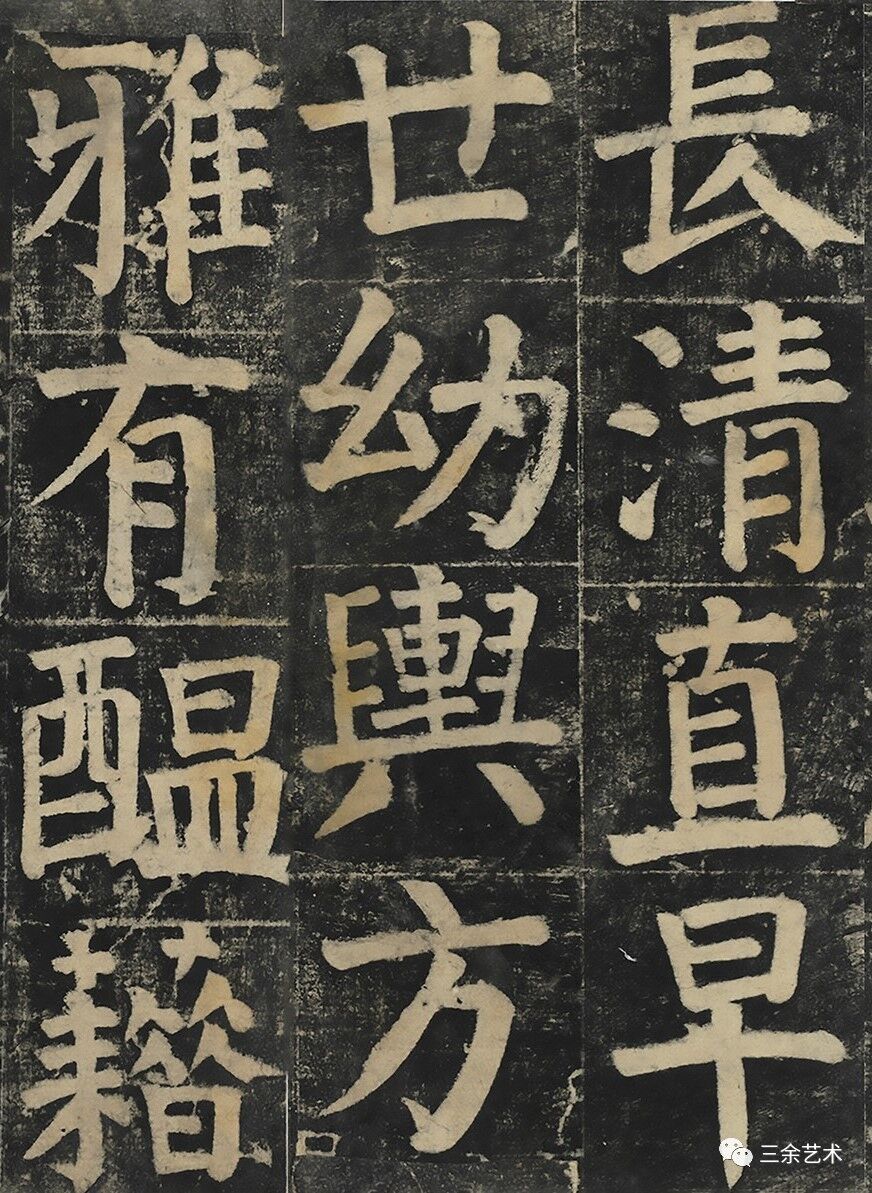 長清直早
世幼輿方
雅有醞藉
三余艺术